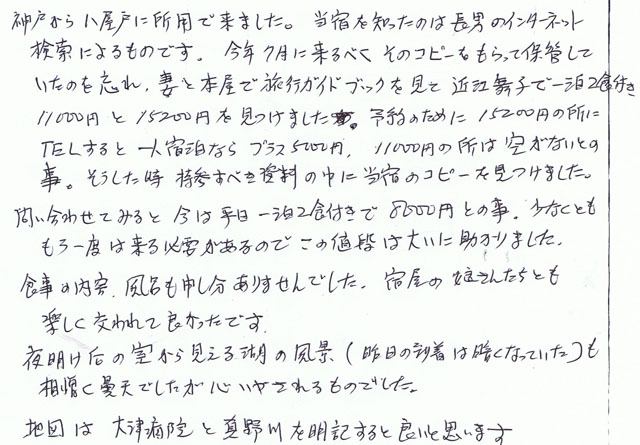 神戸から八屋戸に所用で来ました。当宿を知ったのは長男のインターネット
検索によるものです。今年7月に来るべくそのコピーをもらって保管して
いたのを忘れ、妻と本屋で旅行ガイドブックを見て近江舞子で一泊2食付き
11000円と15200円を見つけました。予約のために15200円の所に
TELすると一人宿泊ならプラス5000円、11000円の所は空がないとの
事。そうした時持参すべき資料の中に当宿のコピーを見つけました。
問い合わせてみると今は平日一泊2食付きで8500円との事。少なくとも
もう一度は来る必要があるのでこの値段は大いに助かりました。
食事の内容、風呂も申し分ありませんでした。宿屋の娘さんたちとも
楽しく交われて良かったです
夜明け后の室から見える湖の風景(昨日の到着は暗くなっていた)も
相憎く曇天でしたが心いやされるものでした。
地図は大津病院と真野川を明記すると良いと思います